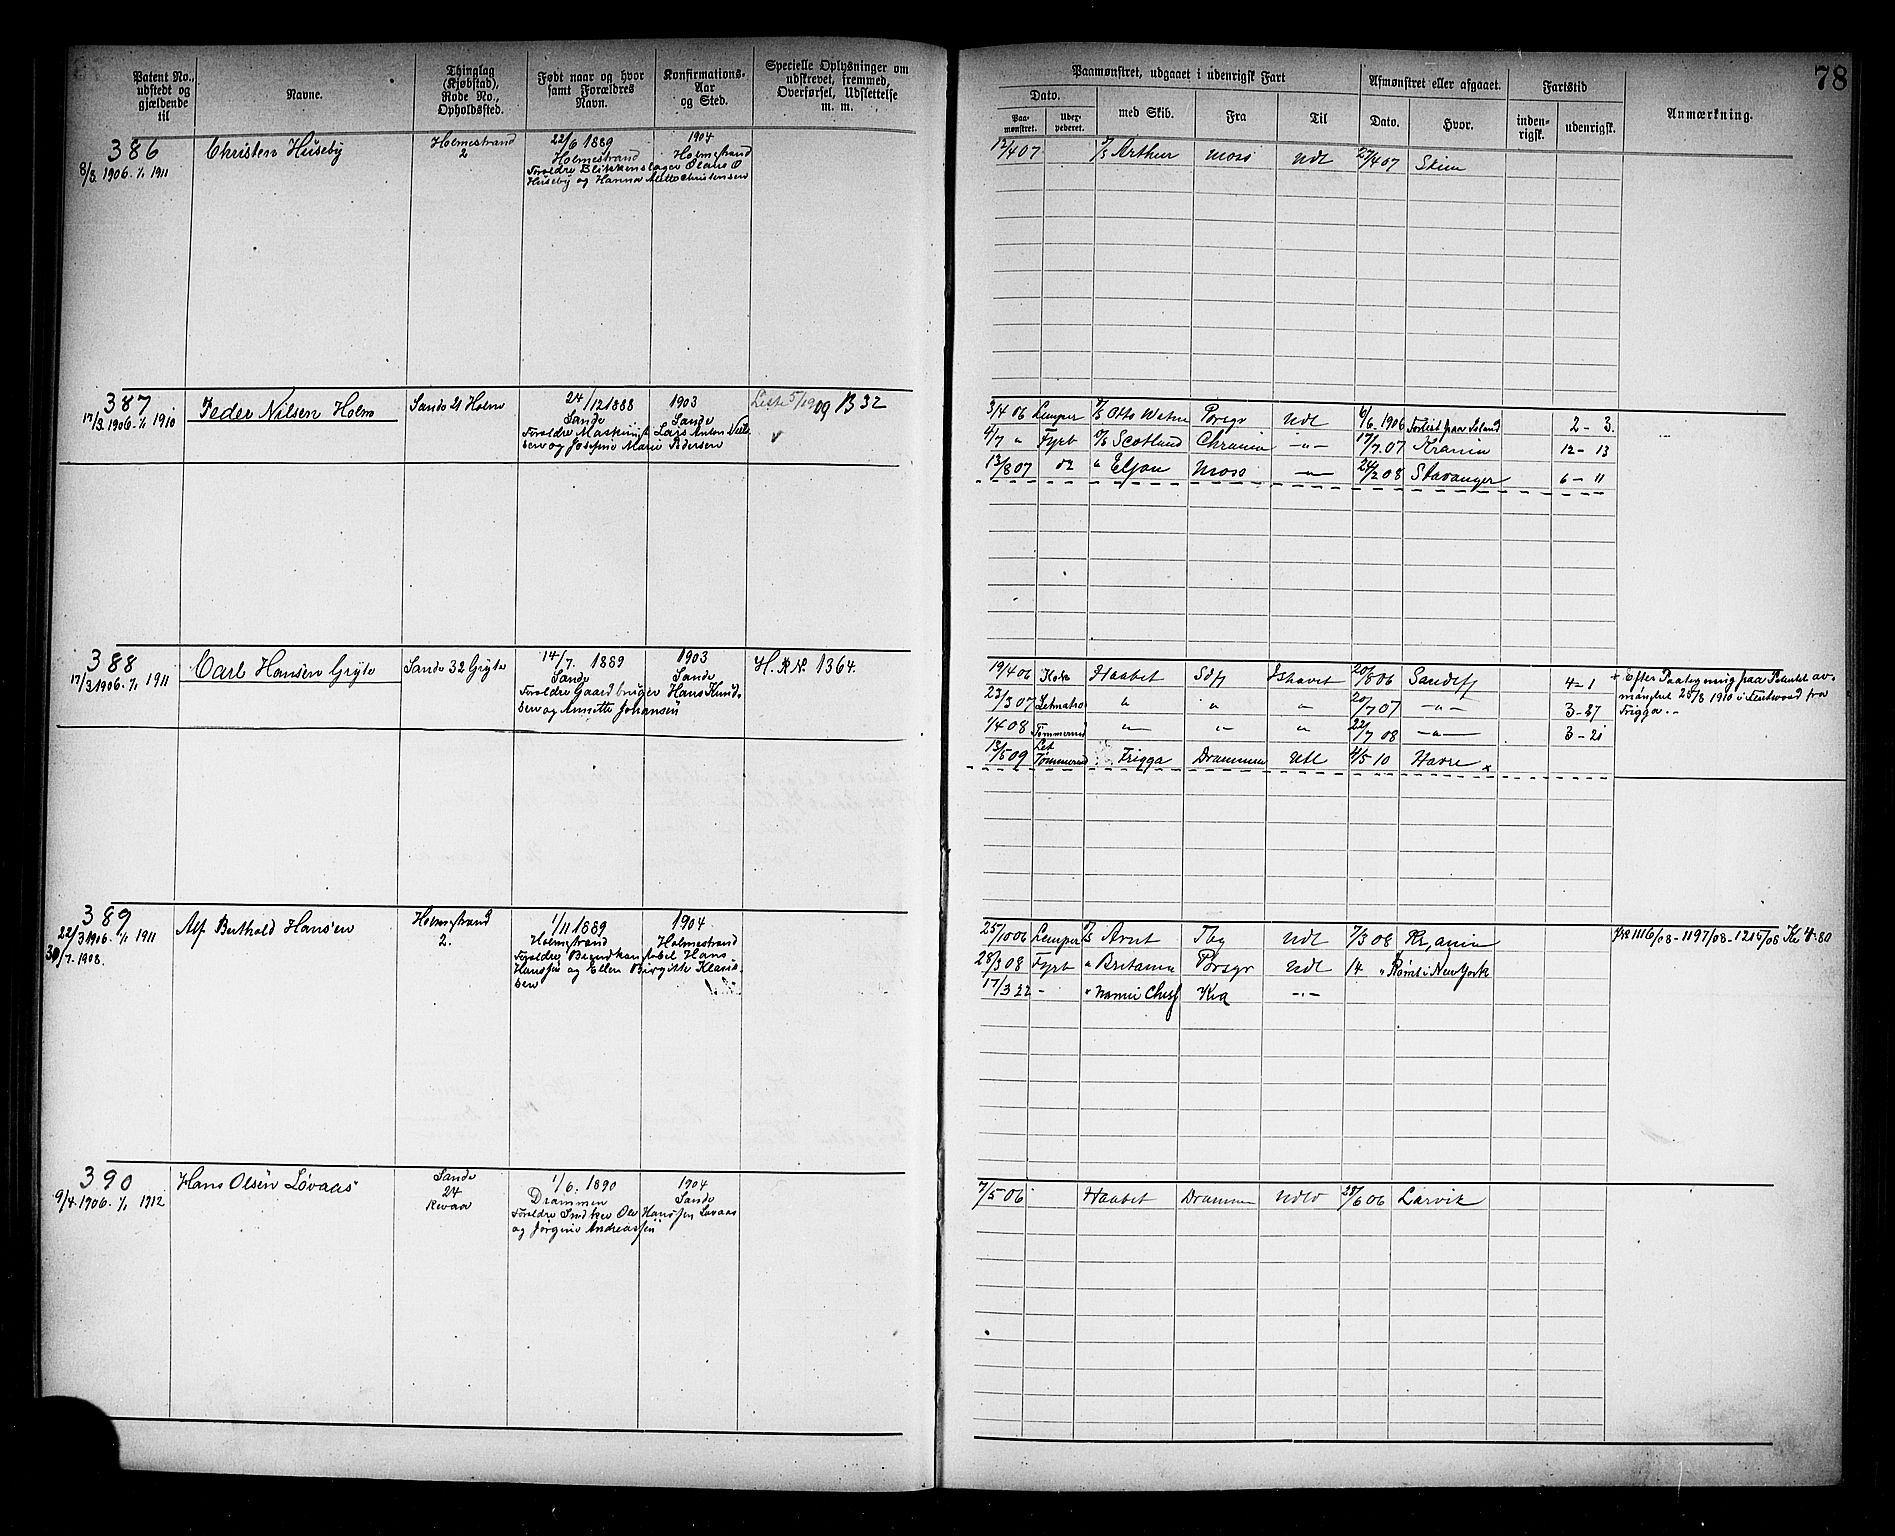 78
Patent No., udstedt og gjældende til
Navne.
Thinglag (Kjøbstad), Rode No., Opholdssted.
Født naar og hvor samt Forældres Navn.
Konfirmations-Aar og Sted.
Specielle Oplysninger om udskrevet, fremmed, Overførsel, Udslettelse m. m.
Paamønstret, udgaaet i udenrigsk Fart
Afmønstret eller afgaaet.
Fartstid
Anmærkning.
Dato.
med Skib.
Fra
Til
Dato.
Hvor.
inden-rigsk.
udenrigsk.
Paa-mønstret.
386
8/3. 1906. 1/1 1911
Christen Huseby
Holmestrand
2
22/6 1889
Holmestrand
Foreldre Blikkenslager Olaus O
Huseby og Hanna Mette Christensen
1904
Holmestrand
12/4 07 Arthur Moss Udl 27/4 07 Skien
387
17/3 1906. 1/1 1910
Peder Nilsen Holm
Sande 21 Holm
24/12 1888
Sande
Foreldre Maskinist Lars Anton Niel-
sen og Josefine Marie Pedersen
1903
Sande
Liste 5/19 09 B 32
3/4 06 Lemper Otto Porsgr Udl 6/6 1906 Forlist paa Island 2 - 3.
4/7 " Fyrb Scotland Chrania -"- 17/7 07 Krania 12 - 13
13/8 07 do " Eljan Moss -"- 24/2 08 Stavanger 6 - 11
388
17/3 1906. 1/1 1911
Carl Hansen Gryte
Sande 32 Gryte
14/7. 1889
Sande
Foreldre Gaardbruger Hans Knud-
sen og Annette Johansen
1903
Sande
H. R. No. 1364.
19/4 06 Kok Haabet Sdfj Ishavet 20/8 06 Sandefj 4 - 1
23/3 07 Letmatros " " " 20/7 07 -"- 3 - 27
1/4 08 Tømmermd " " " 22/7 08 -"- 3 - 21
13/5 09 Let Tømmermd Frigga Drammen Utl 4/5 10 Havre x
x Efter Paategning paa Patentet av-
mønstret 25/8 1910 i Fleetwood fra
Frigga. -
389
22/3 1906. 1/1 1911
30/7. 1908.
Alf Berthold Hansen
Holmestrand
2.
1/11 1889
Holmestrand
Foreldre Brandkonstabel Hans
Hanssen og Ellen Birgitte Klaus-
sen
1904
Holmestrand
25/10 06 Lemper Arnt Tbg Udl 7/3 08 Kr,ania
28/3 08 Fyrb " Britania Porsgr Udl 14 " Rømt i New York
17/3 22 - " Kra -"-
1116/08 - 1197/08 - 1215/08 Kr 4.80
390
9/4. 1906. 1/1 1912
Hans Olsen Løvaas
Sande
24
Revaa
1/6. 1890
Drammen
Foreldre Snedker Ole Hanssen Løvaas
og Jørgine Andreassen
1904
Sande
7/5 06 Haabet Drammen Udld 28/6 06 Larvik